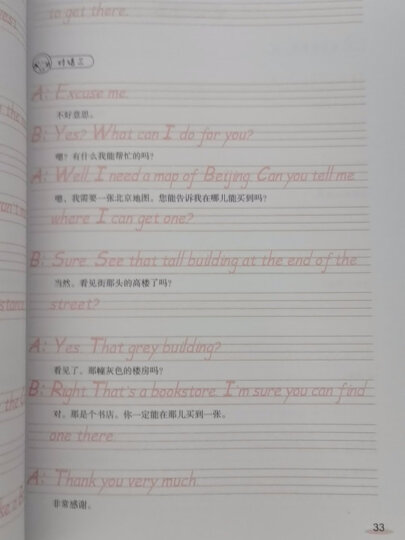 to get there.
对话三
A: Excuse me.
不好意思。
B: Yes? What can I do for you?
嗯？有什么我能帮忙的吗？
A: Well, I need a map of Beijing. Can you tell me
嗯，我需要一张北京地图。您能告诉我在哪儿能买到吗？
where I can get one?
B: Sure. See that tall building at the end of the
当然。看见街那头的高楼了吗？
street?
A: Yes. That grey building?
看见了。那幢灰色的楼房吗？
B: Right. That's a bookstore. I'm sure you can find
对。那是个书店。你一定能在那儿买到一张。
one there.
A: Thank you very much.
非常感谢。
33